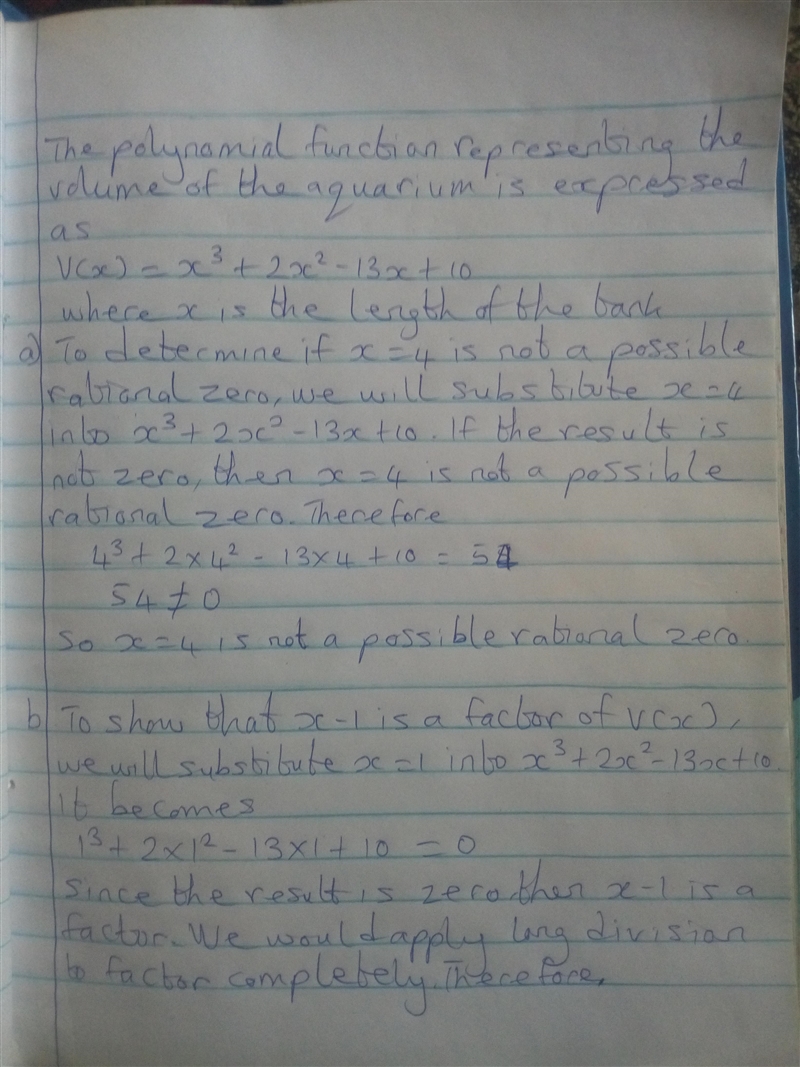 The polynomial function representing the
volume of the aquarium is expressed
as
V(x) = x³ + 2x² - 13x + 10
where x is the length of the tank
a) To determine if x = 4 is not a possible
rational zero, we will substitute x = 4
into x³ + 2x² - 13x + 10. If the result is
not zero, then x = 4 is not a possible
rational zero. Therefore
4³ + 2 × 4² - 13 × 4 + 10 = 54
54 ≠ 0
So x = 4 is not a possible rational zero.
b) To show that x - 1 is a factor of V(x),
we will substitute x = 1 into x³ + 2x² - 13x + 10.
It becomes
1³ + 2 × 1² - 13 × 1 + 10 = 0
Since the result is zero, then x - 1 is a
factor. We would apply long division
to factor completely. Therefore,